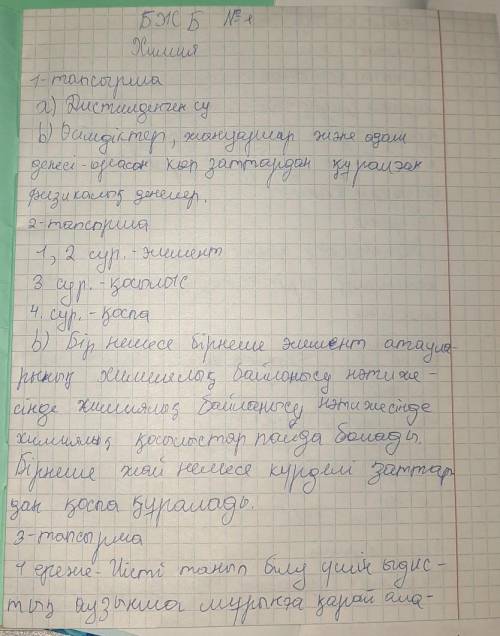 БЖБ №1
Химия
1-тапсырма
a) Дистилденген су
b) Өсімдіктер, жануарлар және адам
денесі - көп заттардан құралған
физикалық денелер.
2-тапсырма
1, 2 сур. - элемент
3 сур. - қосылыс
4. сур. - қоспа
b) Бір немесе бірнеше элемент атаула-
рының химиялық байланысу нәтиже-
сінде химиялық байланысу нәтижесінде
химиялық қосылыстар пайда болады.
Бірнеше жай немесе күрделі заттар
дан қоспа құралады.
3-тапсырма
4 ереже - Иісті танып білу үшін ыдыс-
тың аузынан мұрынға қарай ала-